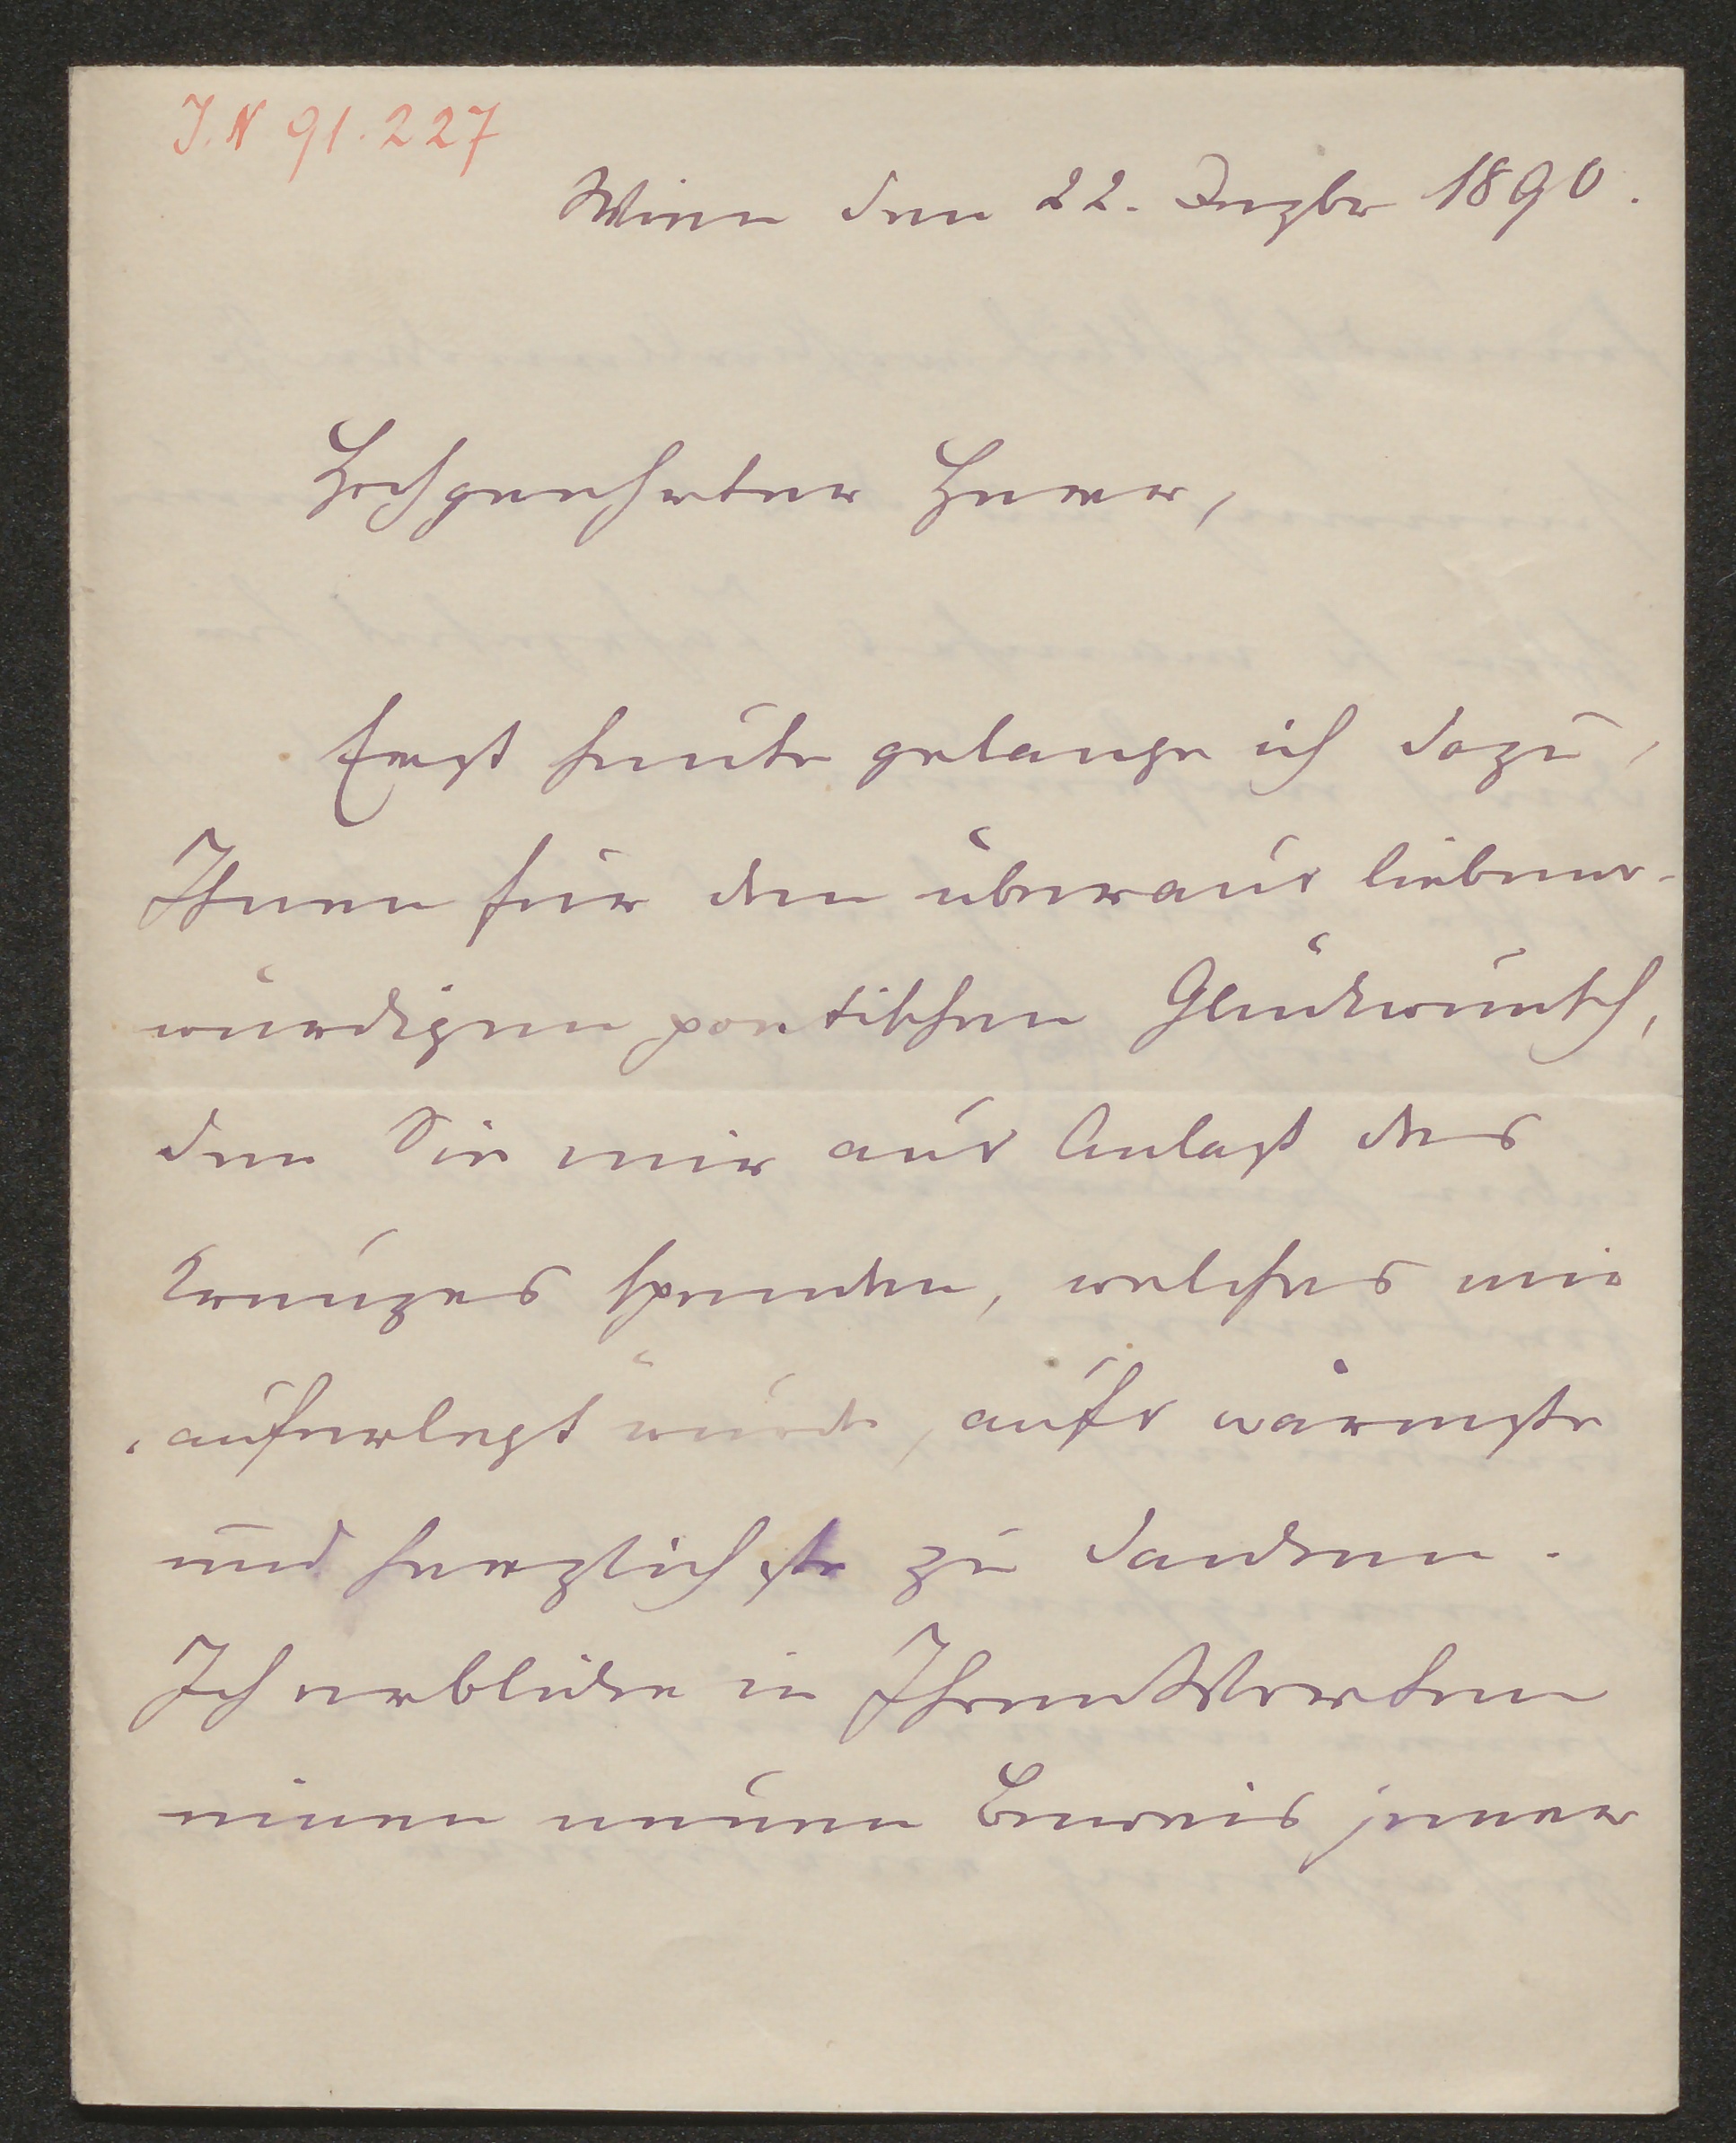 J.N 91.227
Wien den 22. Dezbr 1890.
Hochgeehrter Herr,
Erst heute gelange ich dazu,
Ihnen für den überaus liebens-
würdigen poetischen Glückwunsch,
den Sie mir aus Anlaß des
Kreuzes spenden, welches mir
auferlegt wurde, aufs wärmste
und herzlichste zu danken.
Ich erblicke in Ihren Worten
einen neuen Beweis jener